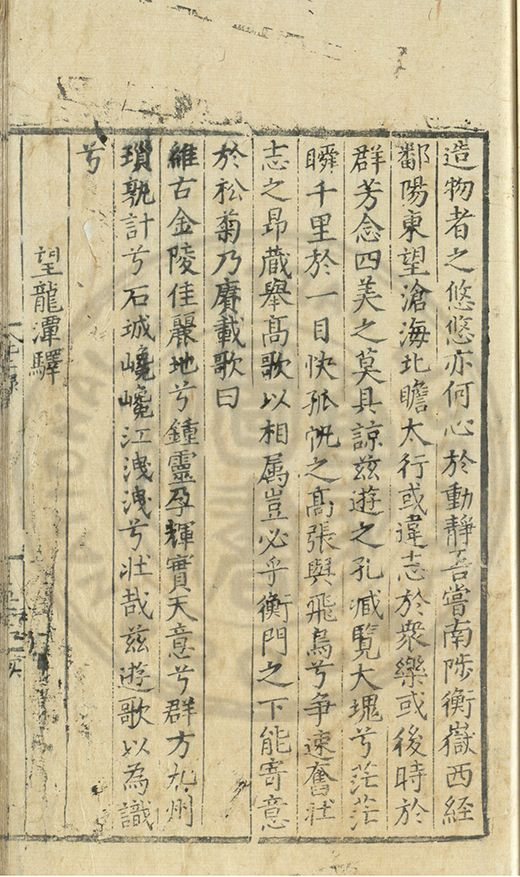 造物者之悠悠亦何心於動靜吾嘗南陟衡嶽西經
鄱陽東望滄海北瞻太行或違志於衆樂或後時於
群芳念四美之莫具諒玆遊之孔臧覽大塊兮茫茫
瞬千里於一目快孤帆之髙張與飛鳥兮争速奮壮
志之昂藏舉髙歌以相属豈必乎衡門之下能寄意
於松菊乃賡載歌曰
維古金陵佳麗地兮鍾靈孕輝實天意兮群方九州
瑣孰計兮石城巉巉江洩洩兮壮哉玆遊歌以為識
兮
望龍潭驛